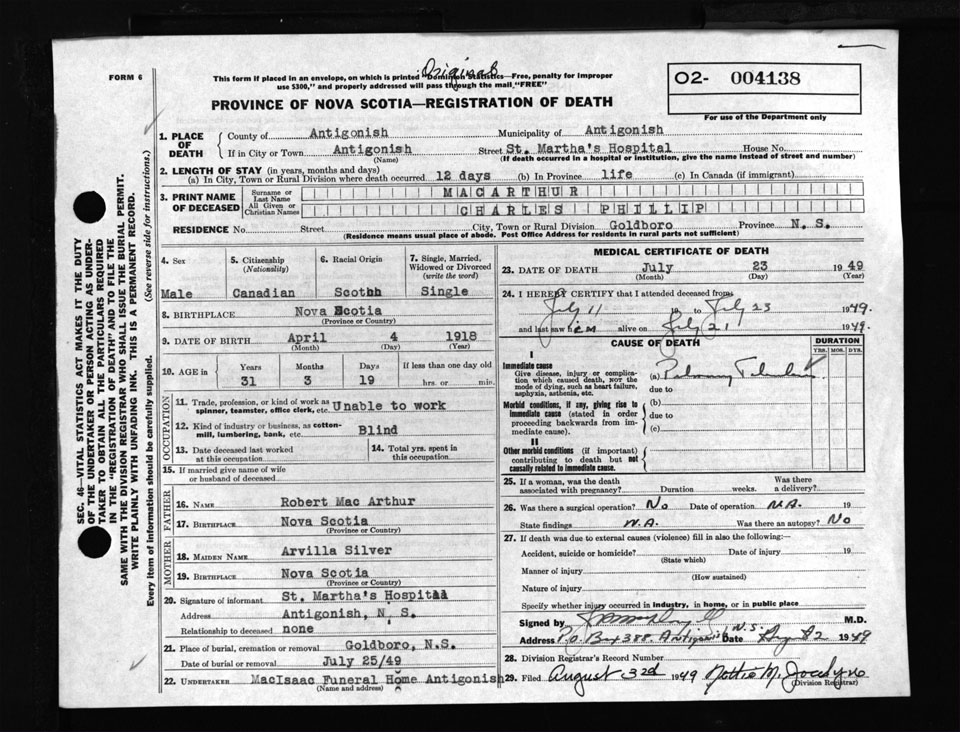 Original
FORM 6
This form if placed in an envelope, on which is printed "Dominion Statistics—Free, penalty for improper
use $300," and properly addressed will pass through the mail, "FREE"
O2- 004138
For use of the Department only
PROVINCE OF NOVA SCOTIA—REGISTRATION OF DEATH
SEC. 46—VITAL STATISTICS ACT MAKES IT THE DUTY
OF THE UNDERTAKER OR PERSON ACTING AS UNDER-
TAKER TO OBTAIN ALL THE PARTICULARS REQUIRED
IN THE "REGISTRATION OF DEATH" AND TO FILE THE
SAME WITH THE DIVISION REGISTRAR WHO SHALL ISSUE THE BURIAL PERMIT.
WRITE PLAINLY WITH UNFADING INK. THIS IS A PERMANENT RECORD.
Every item of information should be carefully supplied. (See reverse side for instructions.)
1. PLACE OF DEATH County of Antigonish Municipality of Antigonish
If in City or Town Antigonish Street St. Martha's Hospital House No.
(Name) (If death occurred in a hospital or institution, give the name instead of street and number)
2. LENGTH OF STAY (in years, months and days)
(a) In City, Town or Rural Division where death occurred 12 days (b) In Province life (c) In Canada (if immigrant)
3. PRINT NAME OF DECEASED Surname or Last Name MACARTHUR
All Given or Christian Names CHARLES PHILLIP
RESIDENCE No. Street City, Town or Rural Division Goldboro Province N. S.
(Residence means usual place of abode. Post Office Address for residents in rural parts not sufficient)
4. Sex 5. Citizenship (Nationality) 6. Racial Origin 7. Single, Married, Widowed or Divorced (write the word)
Male Canadian Scotch Single
8. BIRTHPLACE Nova Scotia
(Province or Country)
9. DATE OF BIRTH April 4 1918
(Month) (Day) (Year)
10. AGE in Years Months Days If less than one day old
31 3 19 hrs. or min.
OCCUPATION
11. Trade, profession, or kind of work as
spinner, teamster, office clerk, etc. Unable to work
12. Kind of industry or business, as cotton-
mill, lumbering, bank, etc. Blind
13. Date deceased last worked at this occupation
14. Total yrs. spent in this occupation
15. If married give name of wife
or husband of deceased
FATHER
16. NAME Robert Mac Arthur
17. BIRTHPLACE Nova Scotia
(Province or Country)
MOTHER
18. MAIDEN NAME Arvilla Silver
19. BIRTHPLACE Nova Scotia
(Province or Country)
20. Signature of informant St. Martha's Hospital
Address Antigonish, N. S.
Relationship to deceased none
21. Place of burial, cremation or removal Goldboro, N.S.
Date of burial or removal July 25/49
22. UNDERTAKER MacIsaac Funeral Home Antigonish
(Name and address)
MEDICAL CERTIFICATE OF DEATH
23. DATE OF DEATH July 23 1949
(Month) (Day) (Year)
24. I HEREBY CERTIFY that I attended deceased from
July 11 19 to July 23 1949.
and last saw him alive on July 21 1949.
CAUSE OF DEATH
DURATION
YRS. MOS. DYS.
I
Immediate cause
Give disease, injury or complica-
tion which caused death, NOT the
mode of dying, such as heart failure,
asphyxia, asthenia, etc.
(a)
due to
Morbid conditions, if any, giving rise to
immediate cause (stated in order
proceeding backwards from im-
mediate cause).
(b)
due to
(c)
II
Other morbid conditions (if important)
contributing to death but not
causally related to immediate cause.
25. If a woman, was the death
associated with pregnancy? Duration weeks. Was there a delivery?
26. Was there a surgical operation? No Date of operation N.A. 19
State findings N.A. Was there an autopsy? No
27. If death was due to external causes (violence) fill in also the following:—
Accident, suicide or homicide? Date of injury 19
(State which)
Manner of injury
(How sustained)
Nature of injury
Specify whether injury occurred in industry, in home, or in public place
Signed by M.D.
Address P.O. Box 388. Antigonish N.S. Date Aug 2 1949
28. Division Registrar's Record Number
29. Filed August 3rd 1949 Nettie M.
(Division Registrar)